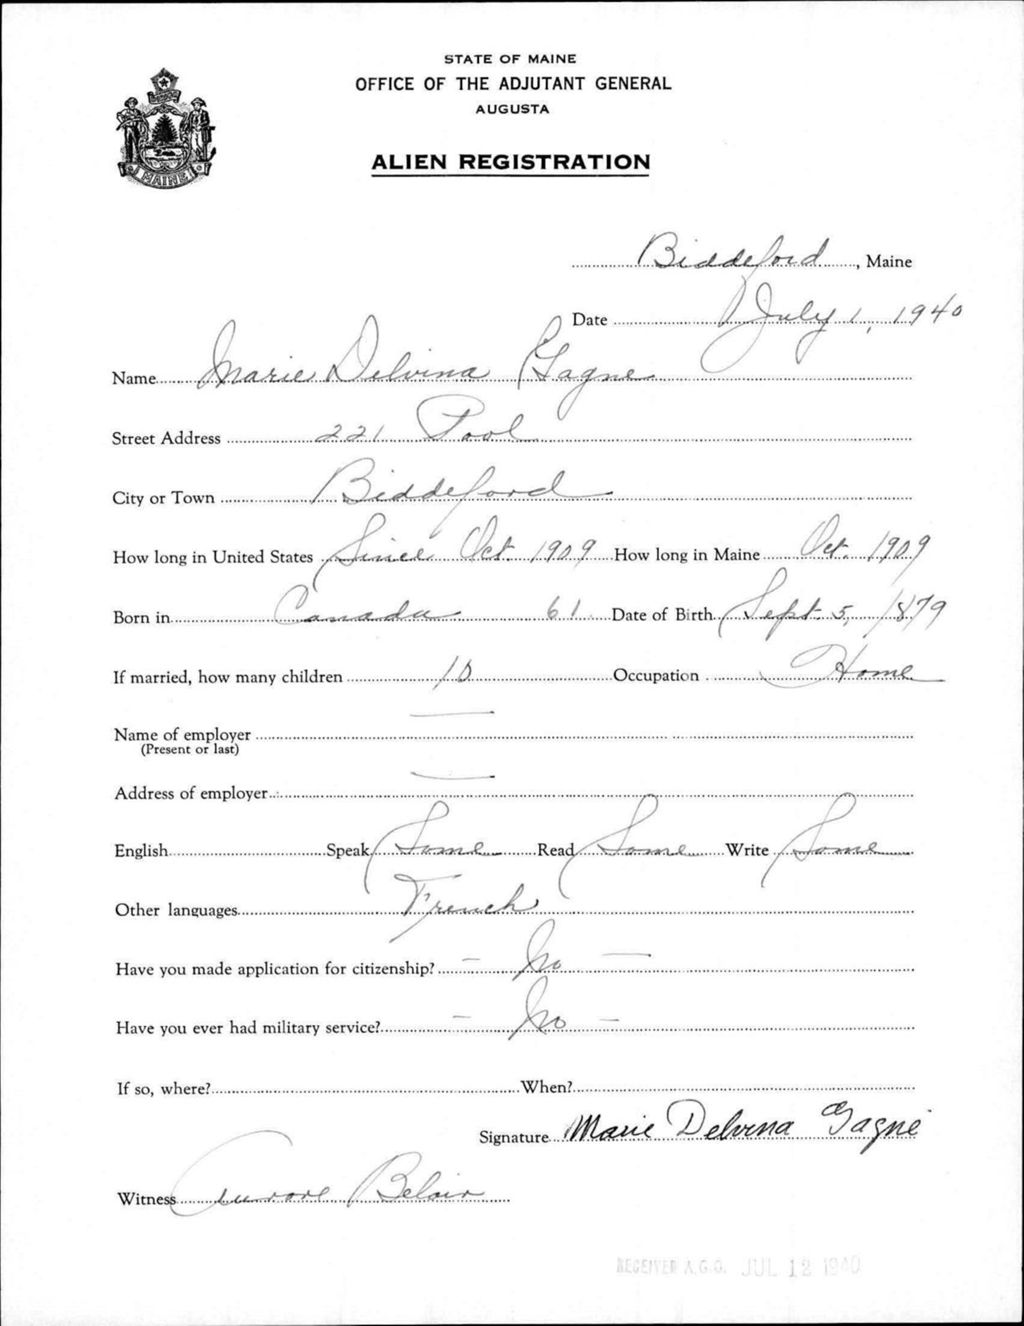 STATE OF MAINE
OFFICE OF THE ADJUTANT GENERAL
AUGUSTA
ALIEN REGISTRATION
MAINE
Biddeford, Maine
Date July 1, 1940
Name Marie Delvina Gagne
Street Address 221 Pool
City or Town Biddeford
How long in United States Since Oct 1909 How long in Maine Oct. 1909
Born in Canada 61 Date of Birth Sept. 5, 1879
If married, how many children 10 Occupation Home
Name of employer —
(Present or last)
Address of employer —
English Speak Some Read Some Write Some
Other languages French
Have you made application for citizenship? — No —
Have you ever had military service? — No —
If so, where? When?
Signature Marie Delvina Gagné
Witness Aurore Belair
RECEIVED A.G.O. JUL 12 1940